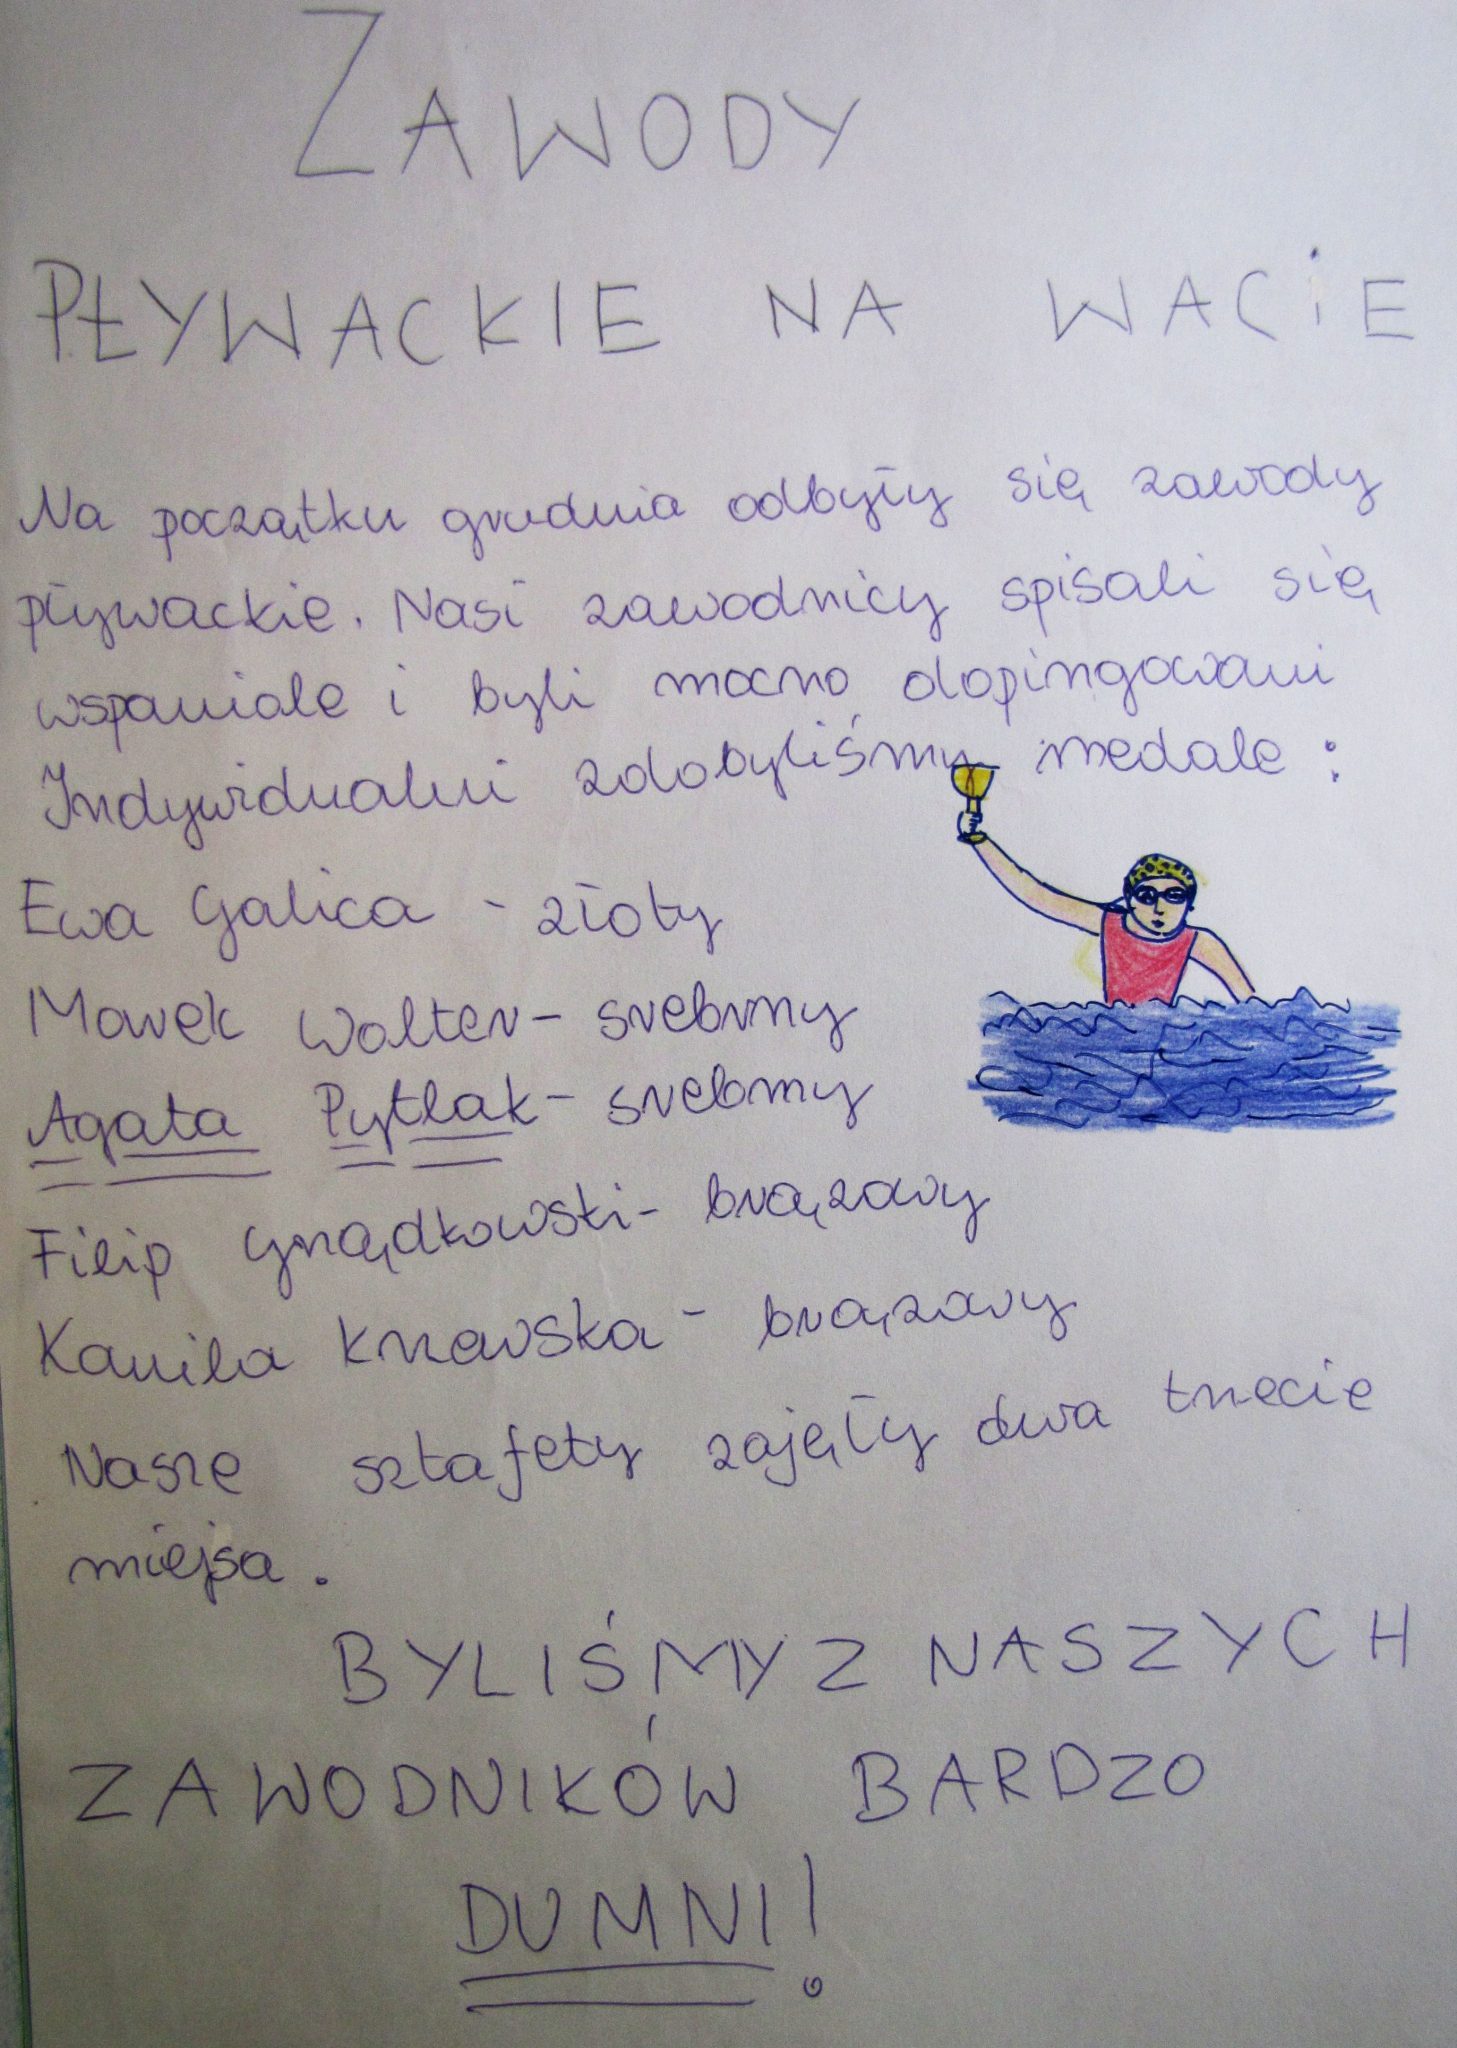 ZAWODY
PŁYWACKIE NA WACiE
Na początku grudnia odbyły się zawody
pływackie. Nasi zawodnicy spisali się
wspaniale i byli mocno dopingowani
Indywidualni zdobyliśmy medale :
Ewa Galica - złoty
Marek Wolter - srebrny
Agata Pytlak - srebrny
Filip Grządkowski - brązowy
Kamila Krzewska - brązowy
Nasze sztafety zajęły dwa trzecie
miejsa.
BYLIŚMY Z NASZYCH
ZAWODNIKÓW BARDZO
DUMNI!